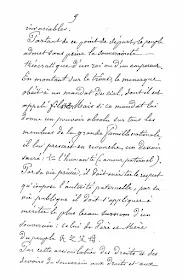 9
invariables.
Partant de ce point de départ, le peuple
admet sans peine la souveraineté
théocratique d'un roi ou d'un empereur.
En montant sur le trône, le monarque
obéit à un mandat du ciel, dont il est
appelé fils. Mais si ce mandat lui
donne un pouvoir absolu sur tous les
membres de la grande famille nationale,
il lui prescrit en revanche, un devoir
sacré: 仁 l'humanité (amour paternel).
Par sa vie privée, il doit mériter le respect
qu'impose l'autorité paternelle, par sa
vie publique il doit s'appliquer à
mériter le plus beau surnom d'un
souverain: celui de Père et Mère
du peuple 民之父母.
Par cette assimilation des Droits et des
devoirs du souverain aux Droits et aux